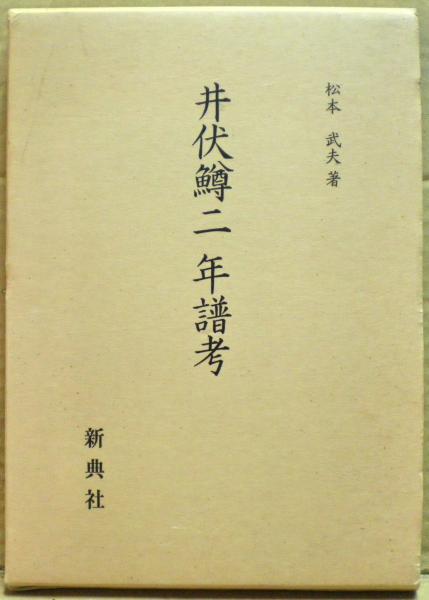 松本 武夫 著
井伏鱒二 年譜考
新典社